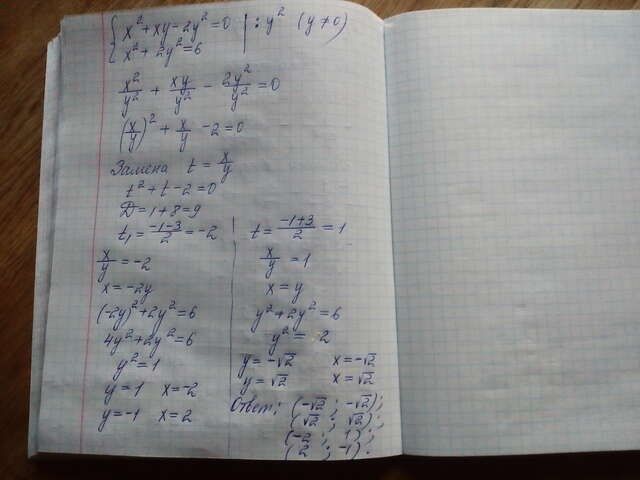 { x² + xy - 2y² = 0 | : y² (y ≠ 0)
x² + 2y² = 6
x²/y² + xy/y² - 2y²/y² = 0
(x/y)² + x/y - 2 = 0
Замена t = x/y
t² + t - 2 = 0
D = 1 + 8 = 9
t₁ = (-1-3)/2 = -2
x/y = -2
x = -2y
(-2y)² + 2y² = 6
4y² + 2y² = 6
y² = 1
y = 1 x = -2
y = -1 x = 2
t = (-1+3)/2 = 1
x/y = 1
x = y
y² + 2y² = 6
y² = 2
y = -√2 x = -√2
y = √2 x = √2
Ответ: (-√2 ; -√2);
(√2 ; √2);
(-2 ; 1);
(2 ; -1).